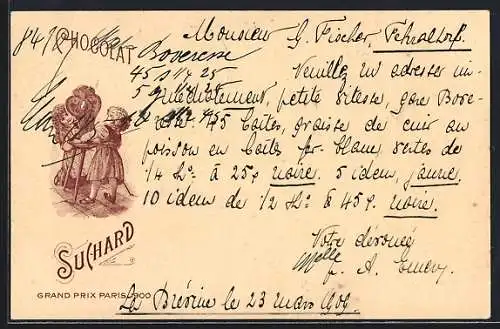 CHOCOLAT
Monsieur G. Fischer, Fehraltorf.
Boveresse
Veuillez m'adresser im-
médiatement, petite vitesse, gare Bove-
resse 45 boîtes, graisse de cuir au
poisson en boîtes fer blanc, vertes de
1/4 K° à 25 c noire. 5 idem, jaune,
10 idem de 1/2 K° à 45 c. noire.
Votre dévouée
SUCHARD
p. A. Emery.
GRAND PRIX PARIS 1900
La Brévine le 23 mars 1909.